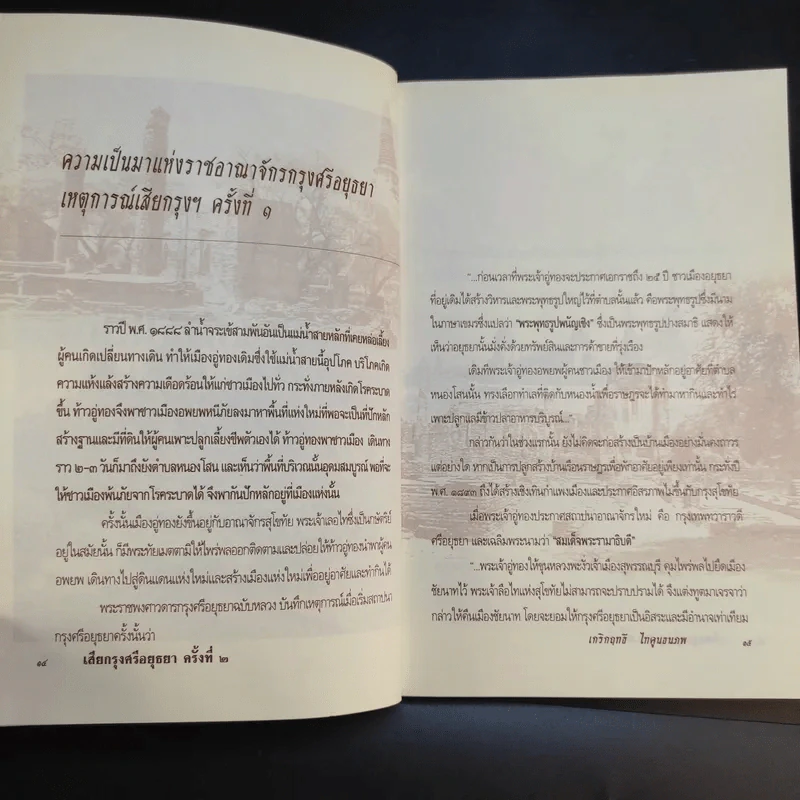 ความเป็นมาแห่งราชอาณาจักรกรุงศรีอยุธยา
เหตุการณ์เสียกรุงฯ ครั้งที่ ๑
ราวปี พ.ศ. ๑๘๘๘ ลำน้ำจระเข้สามพันอันเป็นแม่น้ำสายหลักที่เคยหล่อเลี้ยง
ผู้คนเกิดเปลี่ยนทางเดิน ทำให้เมืองอู่ทองเดิมซึ่งใช้แม่น้ำสายนี้อุปโภค บริโภคเกิด
ความแห้งแล้งสร้างความเดือดร้อนให้แก่ชาวเมืองไปทั่ว กระทั่งภายหลังเกิดโรคระบาด
ขึ้น ท้าวอู่ทองจึงพาชาวเมืองอพยพหนีภัยลงมาหาพื้นที่แห่งใหม่ที่พอจะเป็นที่ปักหลัก
สร้างฐานและมีที่ดินให้ผู้คนเพาะปลูกเลี้ยงชีพตัวเองได้ ท้าวอู่ทองพาชาวเมือง เดินทาง
ราว ๒-๓ วันก็มาถึงยังตำบลหนองโสน และเห็นว่าพื้นที่บริเวณนั้นอุดมสมบูรณ์ พอที่จะ
ให้ชาวเมืองพ้นภัยจากโรคระบาดได้ จึงพากันปักหลักอยู่ที่เมืองแห่งนั้น
ครั้งนั้นเมืองอู่ทองยังขึ้นอยู่กับอาณาจักรสุโขทัย พระเจ้าเลอไทซึ่งเป็นกษัตริย์
อยู่ในสมัยนั้น ก็มีพระทัยเมตตามิให้ไพร่พลออกติดตามและปล่อยให้ท้าวอู่ทองนำพาผู้คน
อพยพ เดินทางไปสู่ดินแดนแห่งใหม่และสร้างเมืองแห่งใหม่เพื่ออยู่อาศัยและทำกินได้
พระราชพงศาวดารกรุงศรีอยุธยาฉบับหลวง บันทึกเหตุการณ์เมื่อเริ่มสถาปนา
กรุงศรีอยุธยาครั้งนั้นว่า
๑๔ เสียกรุงศรีอยุธยา ครั้งที่ ๒
"...ก่อนเวลาที่พระเจ้าอู่ทองจะประกาศเอกราชถึง ๒๕ ปี ชาวเมืองอยุธยา
ที่อยู่เดิมได้สร้างวิหารและพระพุทธรูปใหญ่ไว้ที่ตำบลนั้นแล้ว คือพระพุทธรูปซึ่งมีนาม
ในภาษาเขมรซึ่งแปลว่า "พระพุทธรูปพนัญเชิง" ซึ่งเป็นพระพุทธรูปปางสมาธิ แสดงให้
เห็นว่าอยุธยานั้นมั่งคั่งด้วยทรัพย์สินและการค้าขายที่รุ่งเรือง
เดิมที่พระเจ้าอู่ทองอพยพผู้คนชาวเมือง ให้เข้ามาปักหลักอยู่อาศัยที่ตำบล
หนองโสนนั้น ทรงเลือกทำเลที่ติดกับหนองน้ำเพื่อราษฎรจะได้ทำมาหากินและทำไร่
เพาะปลูกแลมีข้าวปลาอาหารบริบูรณ์..."
กล่าวกันว่าในช่วงแรกนั้น ยังไม่คิดจะก่อสร้างเป็นบ้านเมืองอย่างมั่นคงถาวร
แต่อย่างใด หากเป็นการปลูกสร้างบ้านเรือนราษฎรเพื่อพักอาศัยอยู่เพียงเท่านั้น กระทั่งปี
พ.ศ. ๑๘๙๓ ถึงได้สร้างเชิงเทินกำแพงเมืองและประกาศอิสรภาพไม่ขึ้นกับกรุงสุโขทัย
เมื่อพระเจ้าอู่ทองประกาศสถาปนาอาณาจักรใหม่ คือ กรุงเทพทวาราวดี
ศรีอยุธยา และเฉลิมพระนามว่า "สมเด็จพระรามาธิบดี"
"...พระเจ้าอู่ทองให้ขุนหลวงพะงั่วเจ้าเมืองสุพรรณบุรี คุมไพร่พลไปยึดเมือง
ชัยนาทไว้ พระเจ้าลือไทแห่งสุโขทัยไม่สามารถจะปราบปรามได้ จึงแต่งทูตมาเจรจาว่า
กล่าวให้คืนเมืองชัยนาท โดยจะยอมให้กรุงศรีอยุธยาเป็นอิสระและมีอำนาจเท่าเทียม
เกริกฤทธิ ไทคูนธนภพ ๑๕